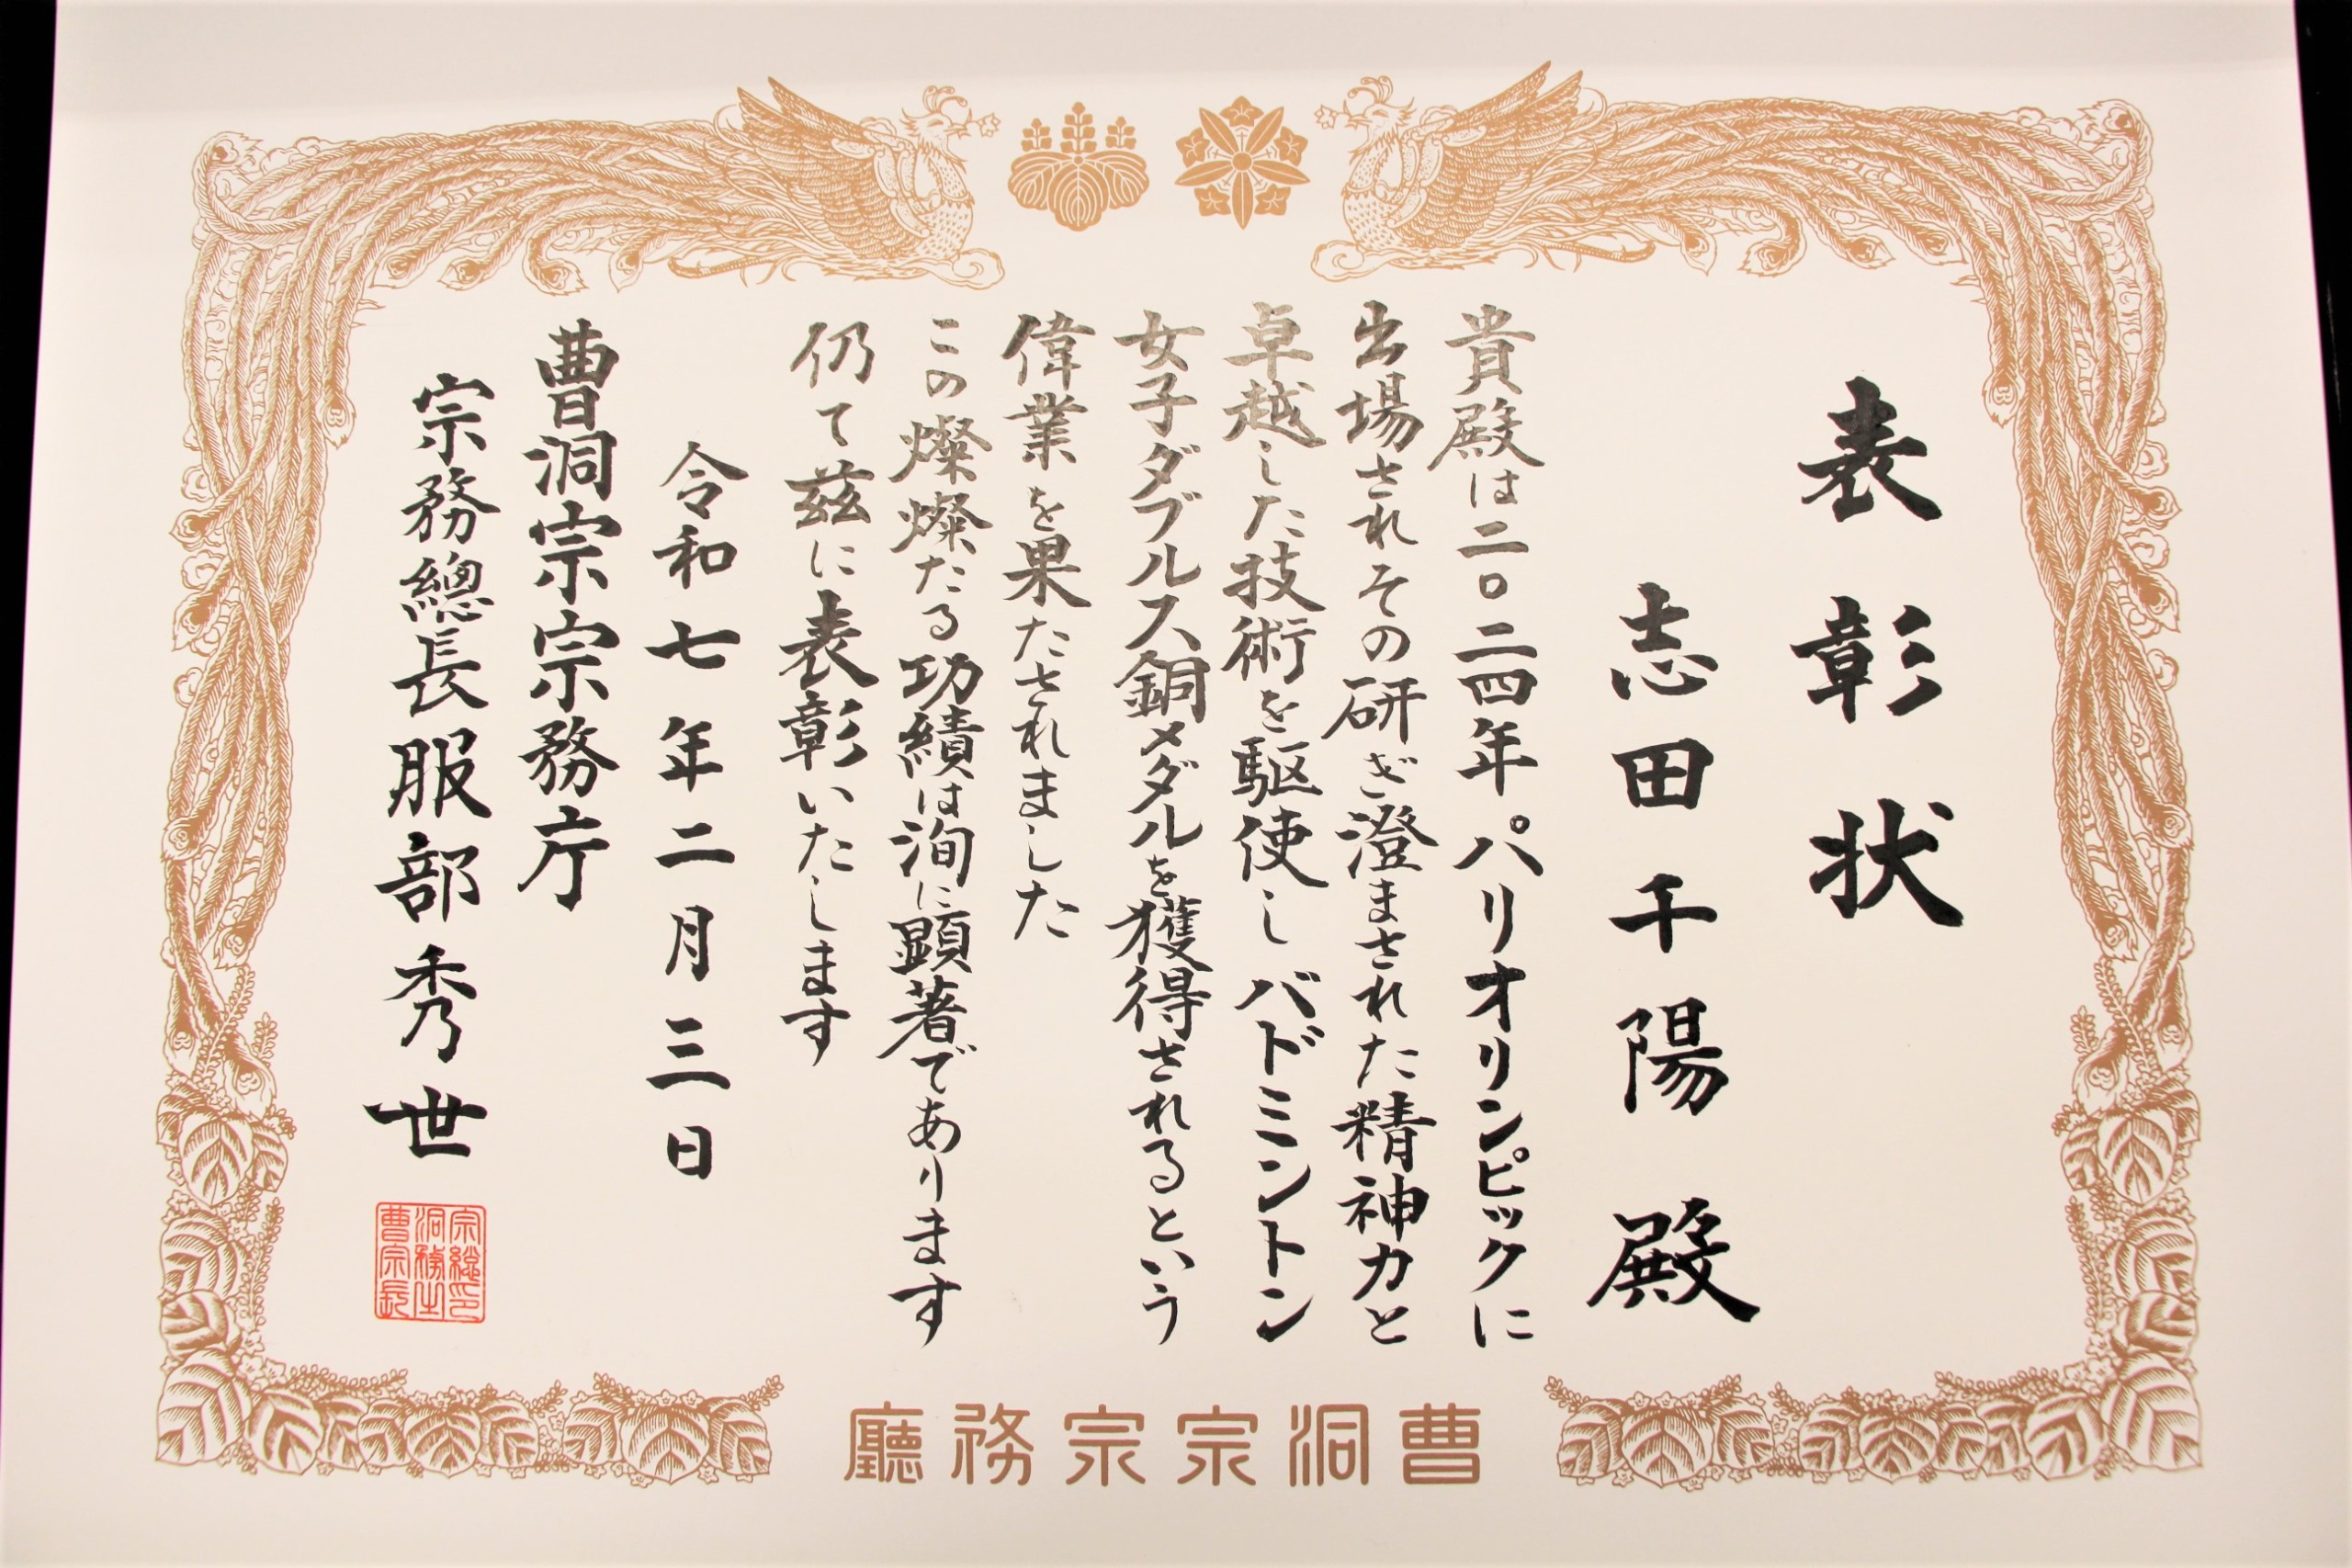 表彰状
志田千陽殿
貴殿は二〇二四年パリオリンピックに
出場されその研ぎ澄まされた精神力と
卓越した技術を駆使しバドミントン
女子ダブルス銅メダルを獲得されるという
偉業を果たされました
この燦燦たる功績は洵に顕著であります
仍て茲に表彰いたします
令和七年二月三日
曹洞宗宗務庁
宗務總長服部秀世
曹洞宗宗務廳